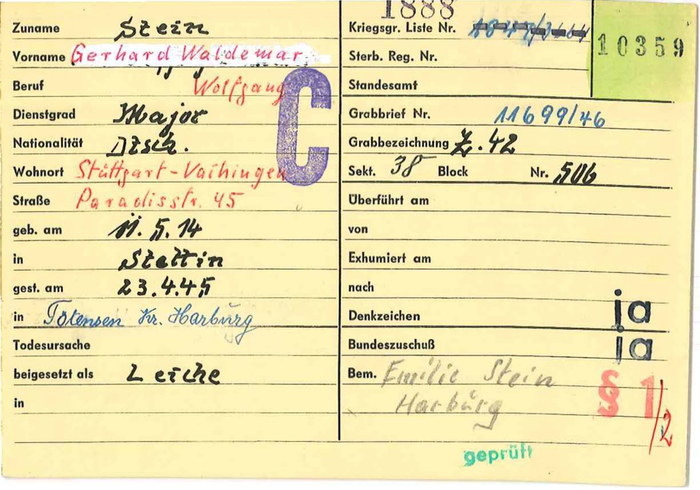 1888
Zuname Stein
Vorname Gerhard Waldemar
Beruf Wolfgang
Dienstgrad Major
Nationalität Dtsch.
Wohnort Stuttgart-Vaihingen
Straße Paradisstr. 45
geb. am 11.5.14
in Stettin
gest. am 23.4.45
in Tötensen Kr. Harburg
Todesursache
beigesetzt als Leiche
in
C
Kriegsgr. Liste Nr.
10359
Sterb. Reg. Nr.
Standesamt
Grabbrief Nr. 11699/46
Grabbezeichnung Z. 42
Sekt. 38 Block Nr. 506
Überführt am
von
Exhumiert am
nach
Denkzeichen ja
Bundeszuschuß ja
Bem. Emilie Stein
Harburg
§ 1/2
geprüft